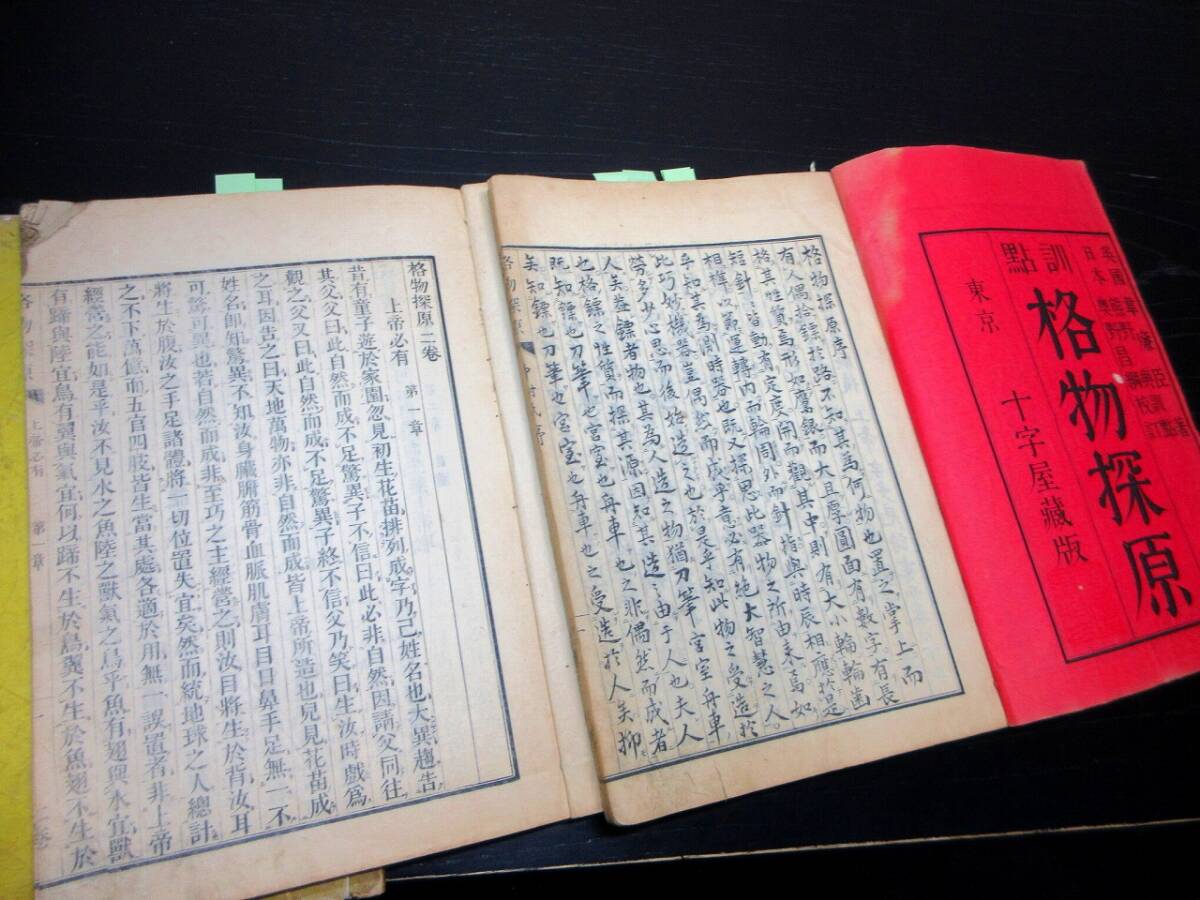 英國韋廉臣著
日本熊野與訓點
奥野昌綱校訂
訓點
格物探原
東京 十字屋藏版
格物探原序
有人偶拾鏢於路不知其爲何物也置之掌上而
格其性質焉形如鷹銀而大且厚圓面有數字有長
短針皆動有定度開而觀其中則有大小輪輪齒
相錯以節運轉內而輪周外而針指與時辰相應於是
乎知其爲測時器也既又探思此器物之所由來焉如
此巧妙機器豈偶然而成乎意必有絶大智慧之人
勞多少心思而後始造之也於是乎知此物之受造於
人矣蓋鏢者物也其爲人造之物猶刀筆宮室舟車
也格鏢之性質而探其原因知其造之由于人也夫人
既知鏢也刀筆也宮室也舟車也之非偶然而成者
矣知鏢也刀筆也宮室也舟車也之受造於人矣抑
格物探原二卷
上帝必有 第一章
昔有童子遊於家園忽見初生花苗排列成字乃己姓名也大異趨告
其父父曰此自然而成不足驚異子不信曰此必非自然因請父同往
觀之父又曰此自然而成不足驚異子終不信父乃笑曰生汝時戲爲
之耳因告之曰天地萬物亦非自然而成皆上帝所造也兒見花苗成
姓名即知驚異不知汝身臟腑筋骨血脈肌膚耳目口鼻手足無一不
可驚可異也若自然而成非至巧之主經營之則汝目將生於背汝耳
將生於腹汝之手足諸體將一切位置失宜矣然而統地球之人總計
之不下萬億而五官四肢皆生當其處各適於用無一誤置者非上帝
經營之能如是乎汝不見水之魚陸之獸氣之鳥乎魚有翅與水宜獸
有蹄與陸宜鳥有翼與氣宜何以蹄不生於鳥翼不生於魚翅不生於
格物探原 上帝必有 第一章 一 二卷